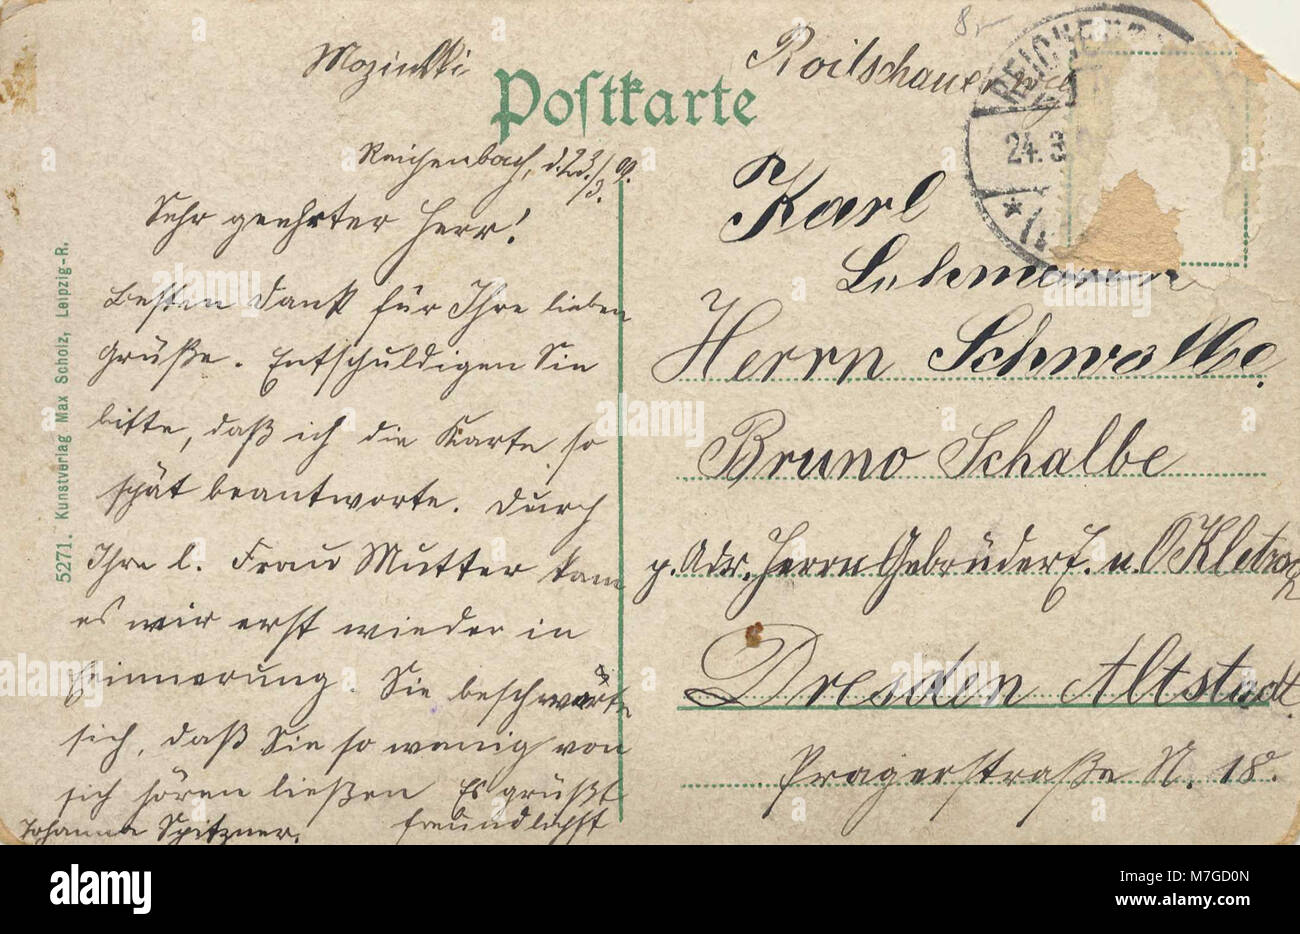 8,-
Mozinski
Roitschauer
Postkarte
REICHENB
24. 3
Reichenbach, d. 23./3. 09.
Sehr geehrter Herr!
Besten Dank für Ihre lieben
Grüße. Entschuldigen Sie
bitte, daß ich die Karte so
spät beantworte. Durch
Ihre l. Frau Mutter kam
es mir erst wieder in
Erinnerung. Sie beschwerte
sich, daß Sie so wenig von
sich hören ließen. Es grüßt
freundlichst
Johanna Spitzner.
5271. Kunstverlag Max Scholz, Leipzig-R.
Karl
Lehmann
Herrn Schwalbe
Bruno Schalbe
p. Adr. Herrn Gebrüder E. u. O
Dresden Altstadt
Pragerstraße N. 18.
alamy
Image ID: M7GD0N
www.alamy.com